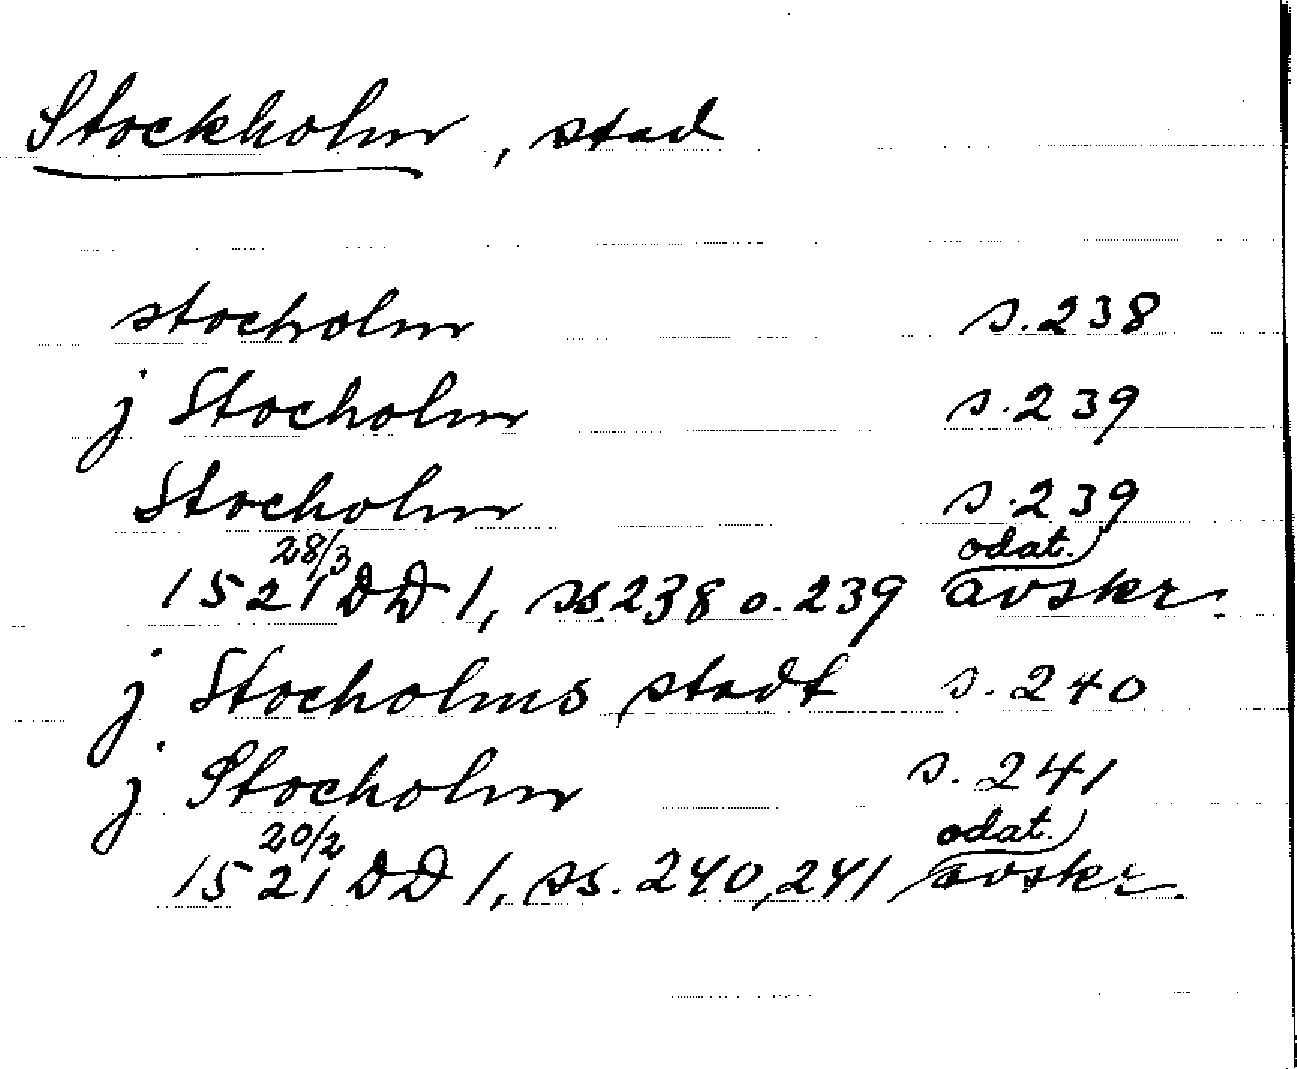 Stockholm, stad
stocholm s. 238
j Stocholm s. 239
Stocholm s. 239
28/3 odat.
1521 DD 1, ss. 238 o. 239 avskr.
j Stocholms stadt s. 240
j Stocholm s. 241
20/2 odat.
1521 DD 1, ss. 240, 241 avskr.